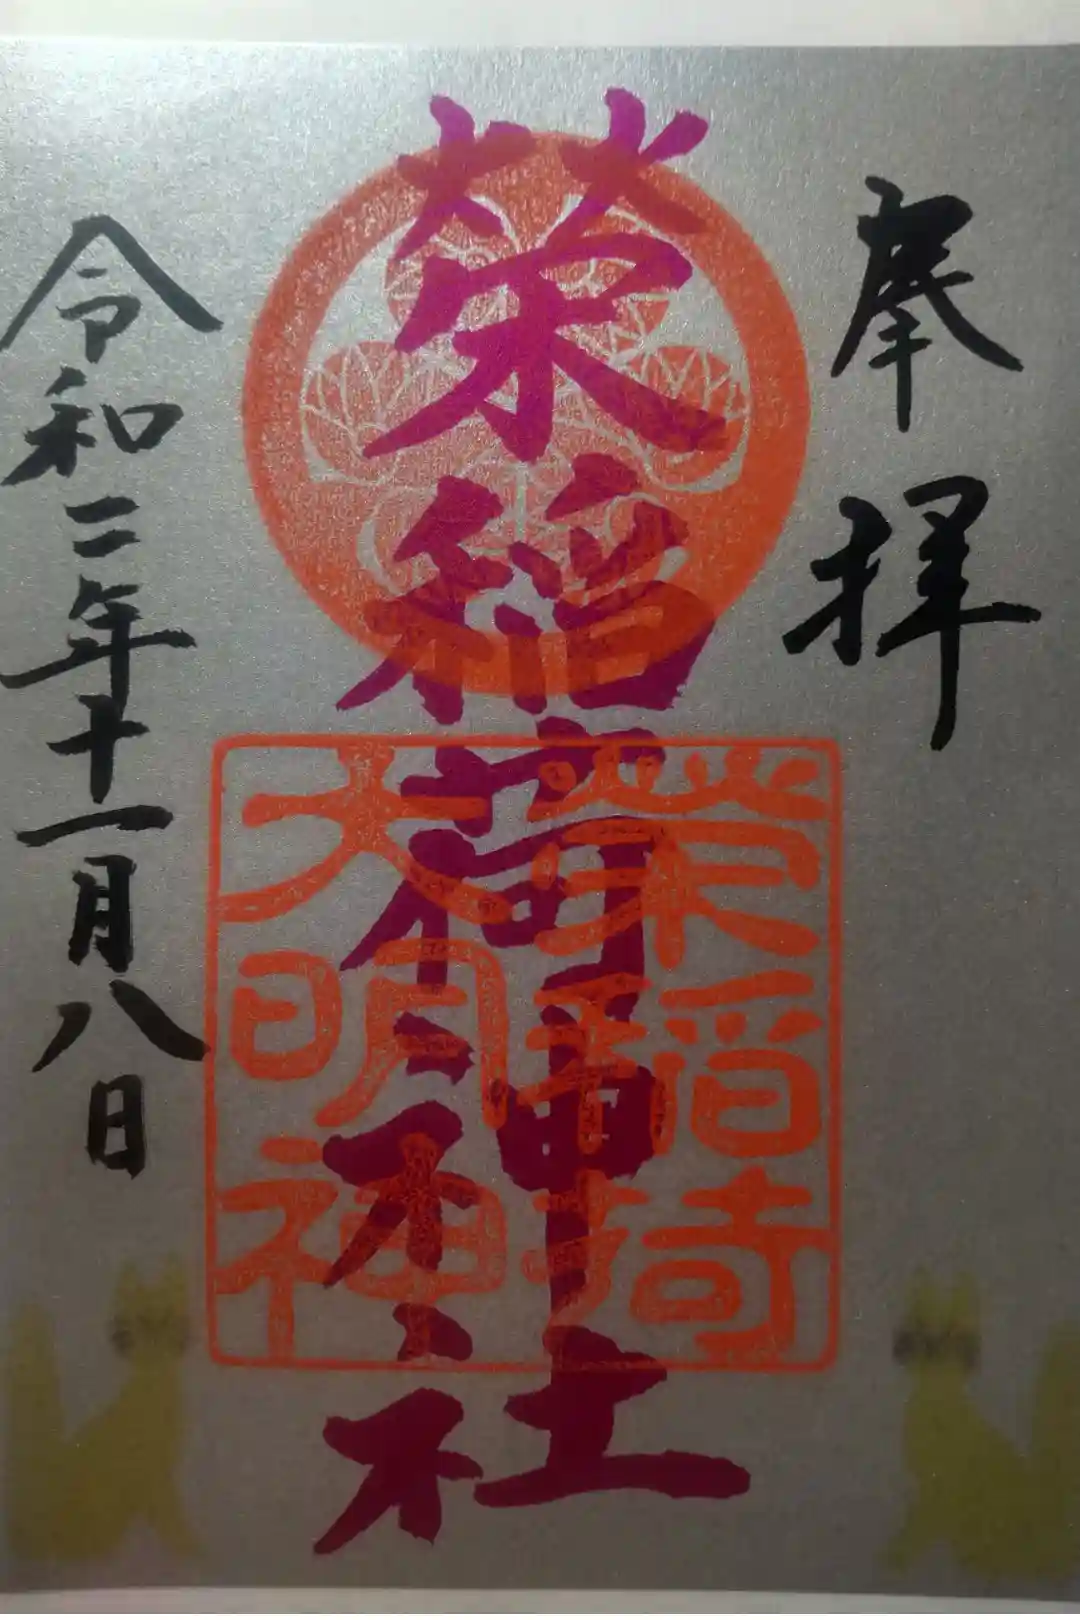 奉拝
榮稲荷神社
榮稲荷
大明神
令和二年十一月八日